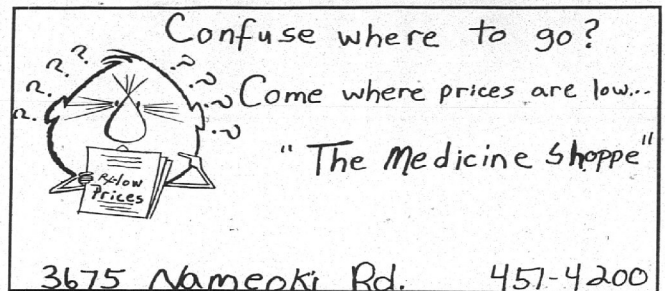 Confuse where to go?
? ? ? ? ? ? ? ?
Come where prices are low...
"The Medicine Shoppe"
Rx-low
Prices
3675 Nameoki Rd. 457-4200